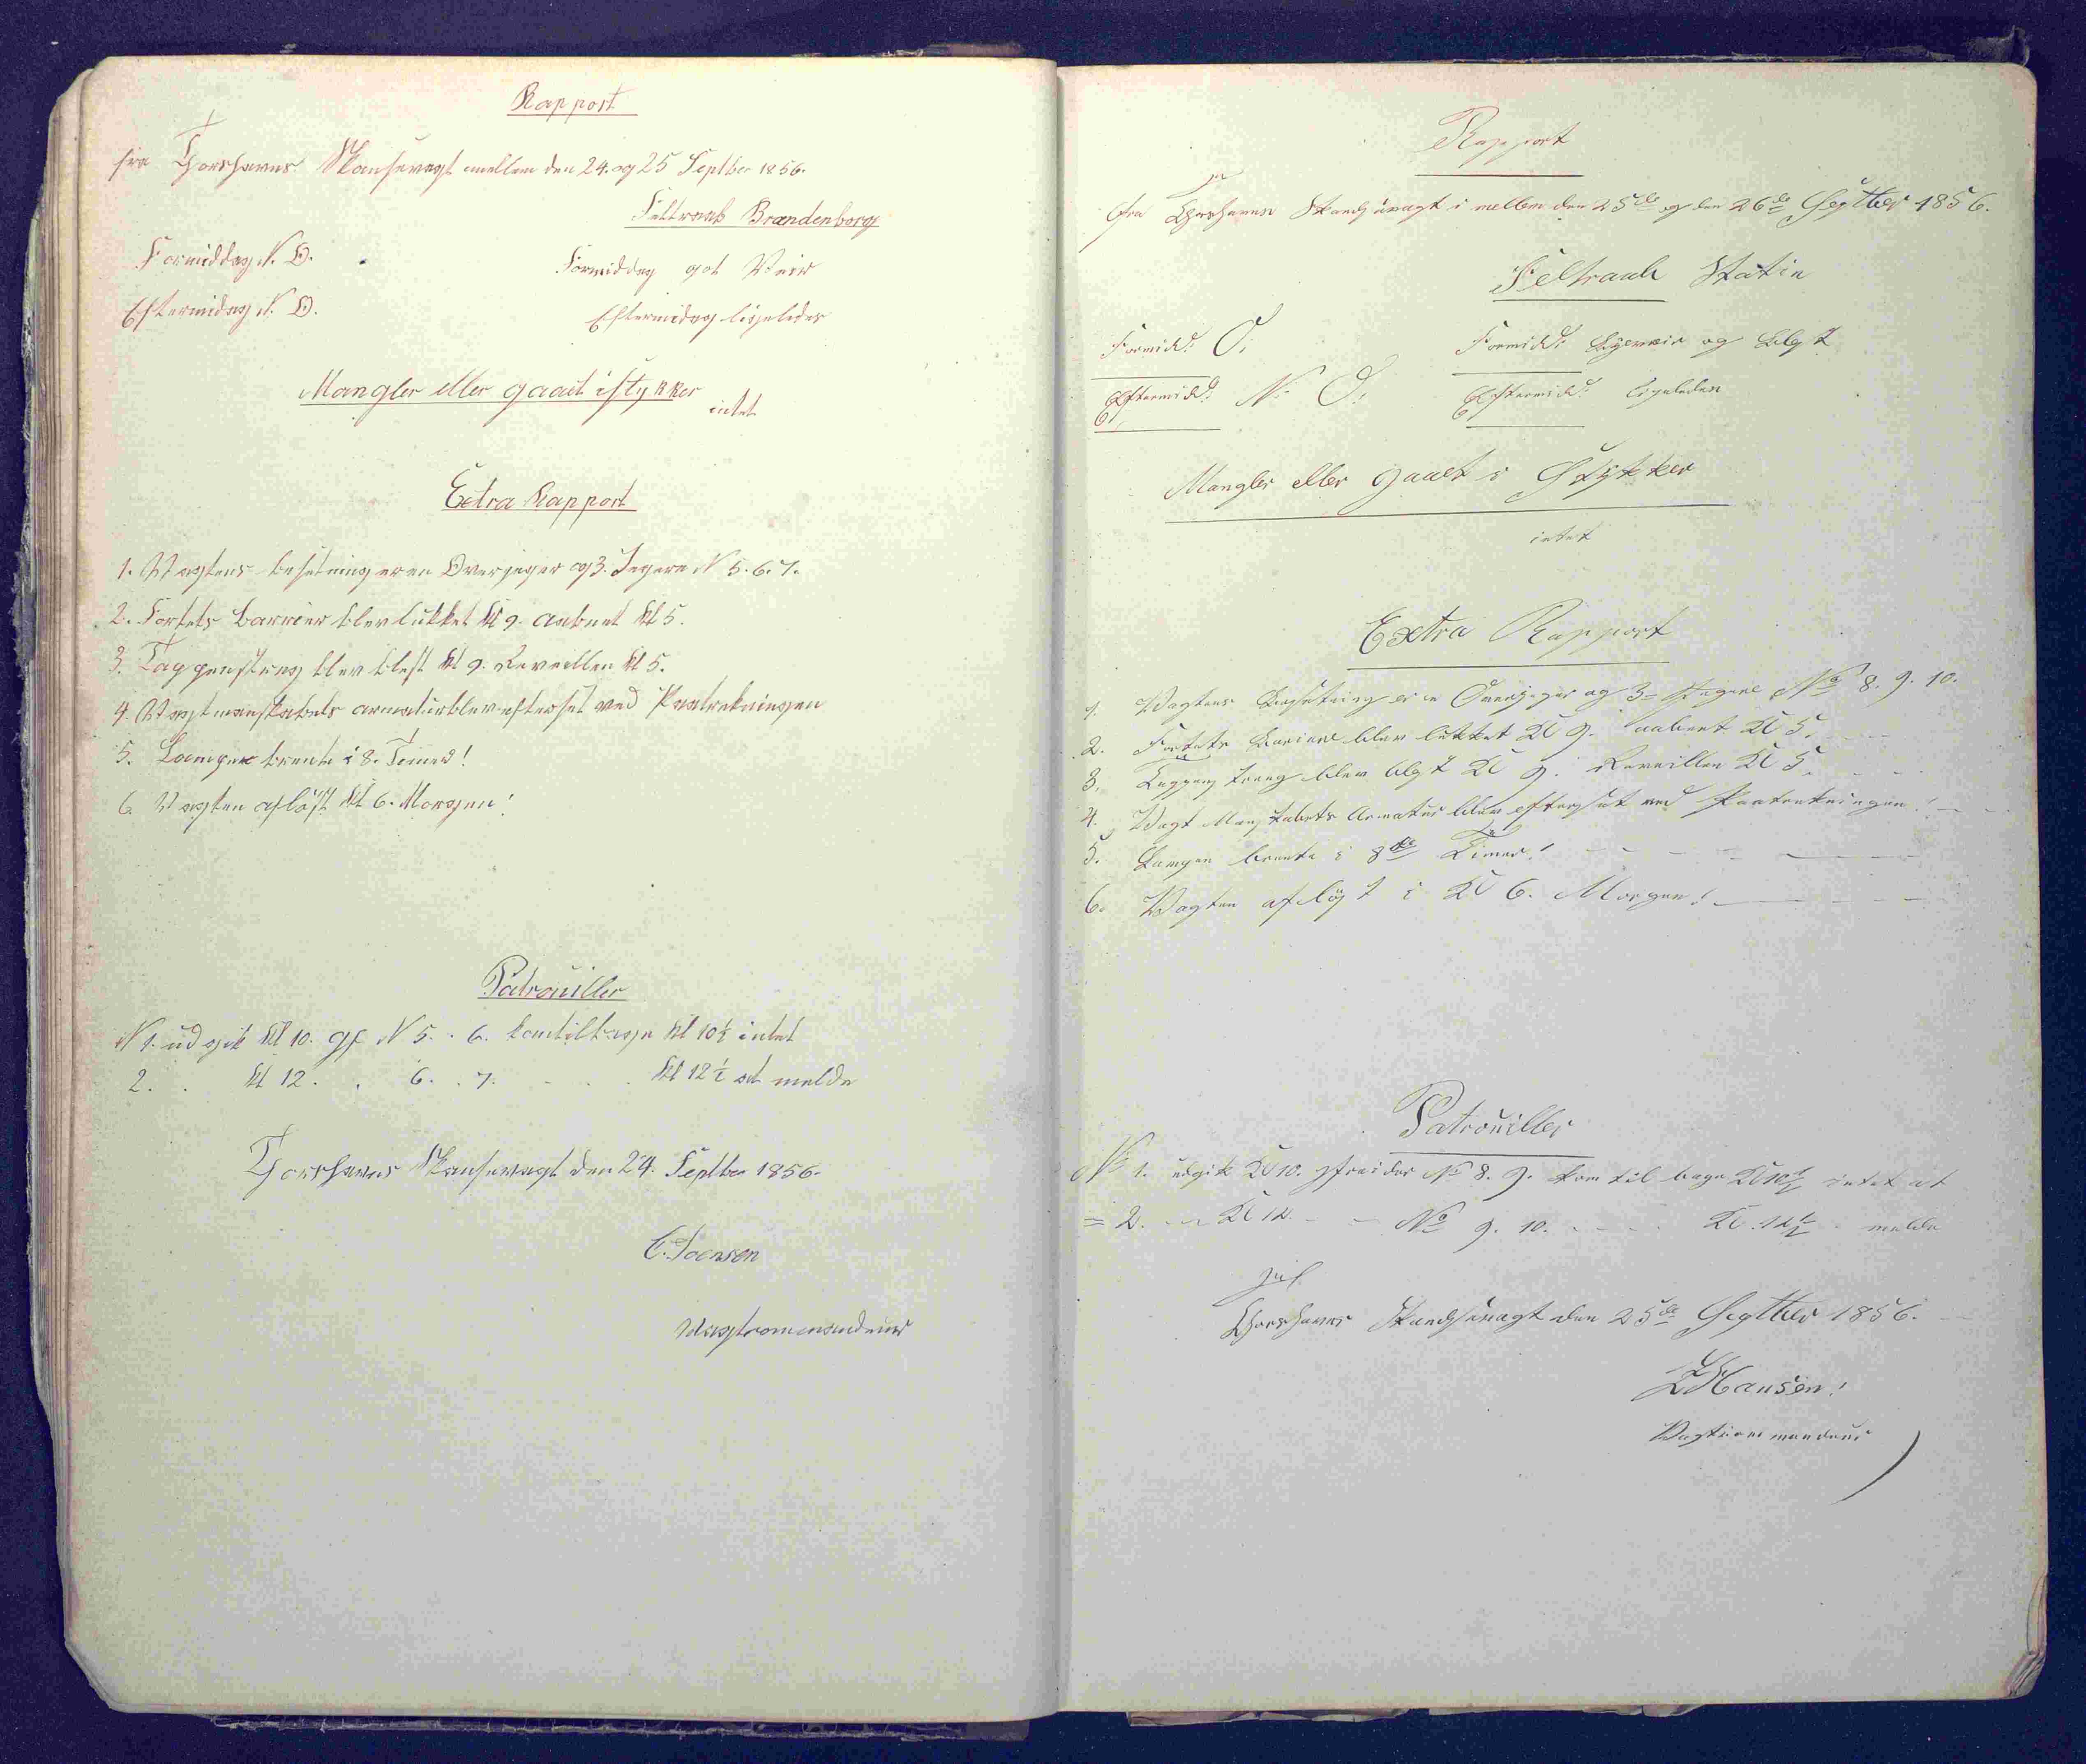 Rapport
fra Thorshavns Skansevagt mellem den 24. og 25 Septber 1856.
Feltraab Brandenborg
Formiddag N. O. Formiddag got Veir
Eftermidag N. O. Eftermidag ligeledes
Mangler eller gaait istykker intet
Extra Rapport
1. Vagtens besetning er en Overjeger og 3. Jegere N 5. 6. 7.
2. Fortets barrier blev lukket Kl 9. aabnet Kl 5.
3. Tappenstreg blev blest Kl 9. Reveillen Kl 5.
4. Vagtmanskabets armatur blev efterset ved Paatrekningen
5. Lampen brente i 8. Timer!
6. Vagten aflöst Kl 6. Morgen!
Patrouiller
N 1. udgik Kl 10. gf N 5. . 6. kom tilbage Kl 10½ intet
2. . Kl 12. . 6. . 7. . . . Kl 12½ at melde
Thorshavns Skansevagt den 24. Septber 1856.
C. Joensen
Vagtcommandeur
Rapport
fra Thorshavns Skandsevagt i mellem den 25de og den 26de Septber 1856.
Feltraab Statin
Formidd: O: Formidd: Öjenveir og blest
Eftermidd: N: O: Eftermidd: ligeledes
Mangler eller gaaet i Stykker
intet
Extra Rapport
1. Vagtens Besetning er en Overjeger og 3= Jegere No 8. 9. 10.
2. Fortets Bariere blev lukket Kl 9. aabent Kl 5.
3. Tappenstreg blev blest Kl 9. Reveillen Kl 5.
4. Vagt Manskabets Armatur blev efterset ved Paatrekningen!
5. Lampen brente i 8de Timer!
6. Vagten aflöst i Kl 6. Morgen!
Patrouiller
No 1. udgik Kl 10. gfreider No 8. 9. kom til bage Kl 10½ intet at
= 2. Kl 12. No 9. 10. Kl. 12½ melde
Thorshavns Skandsevagt den 25de Septber 1856.
Hansen!
Vagtcommandeur